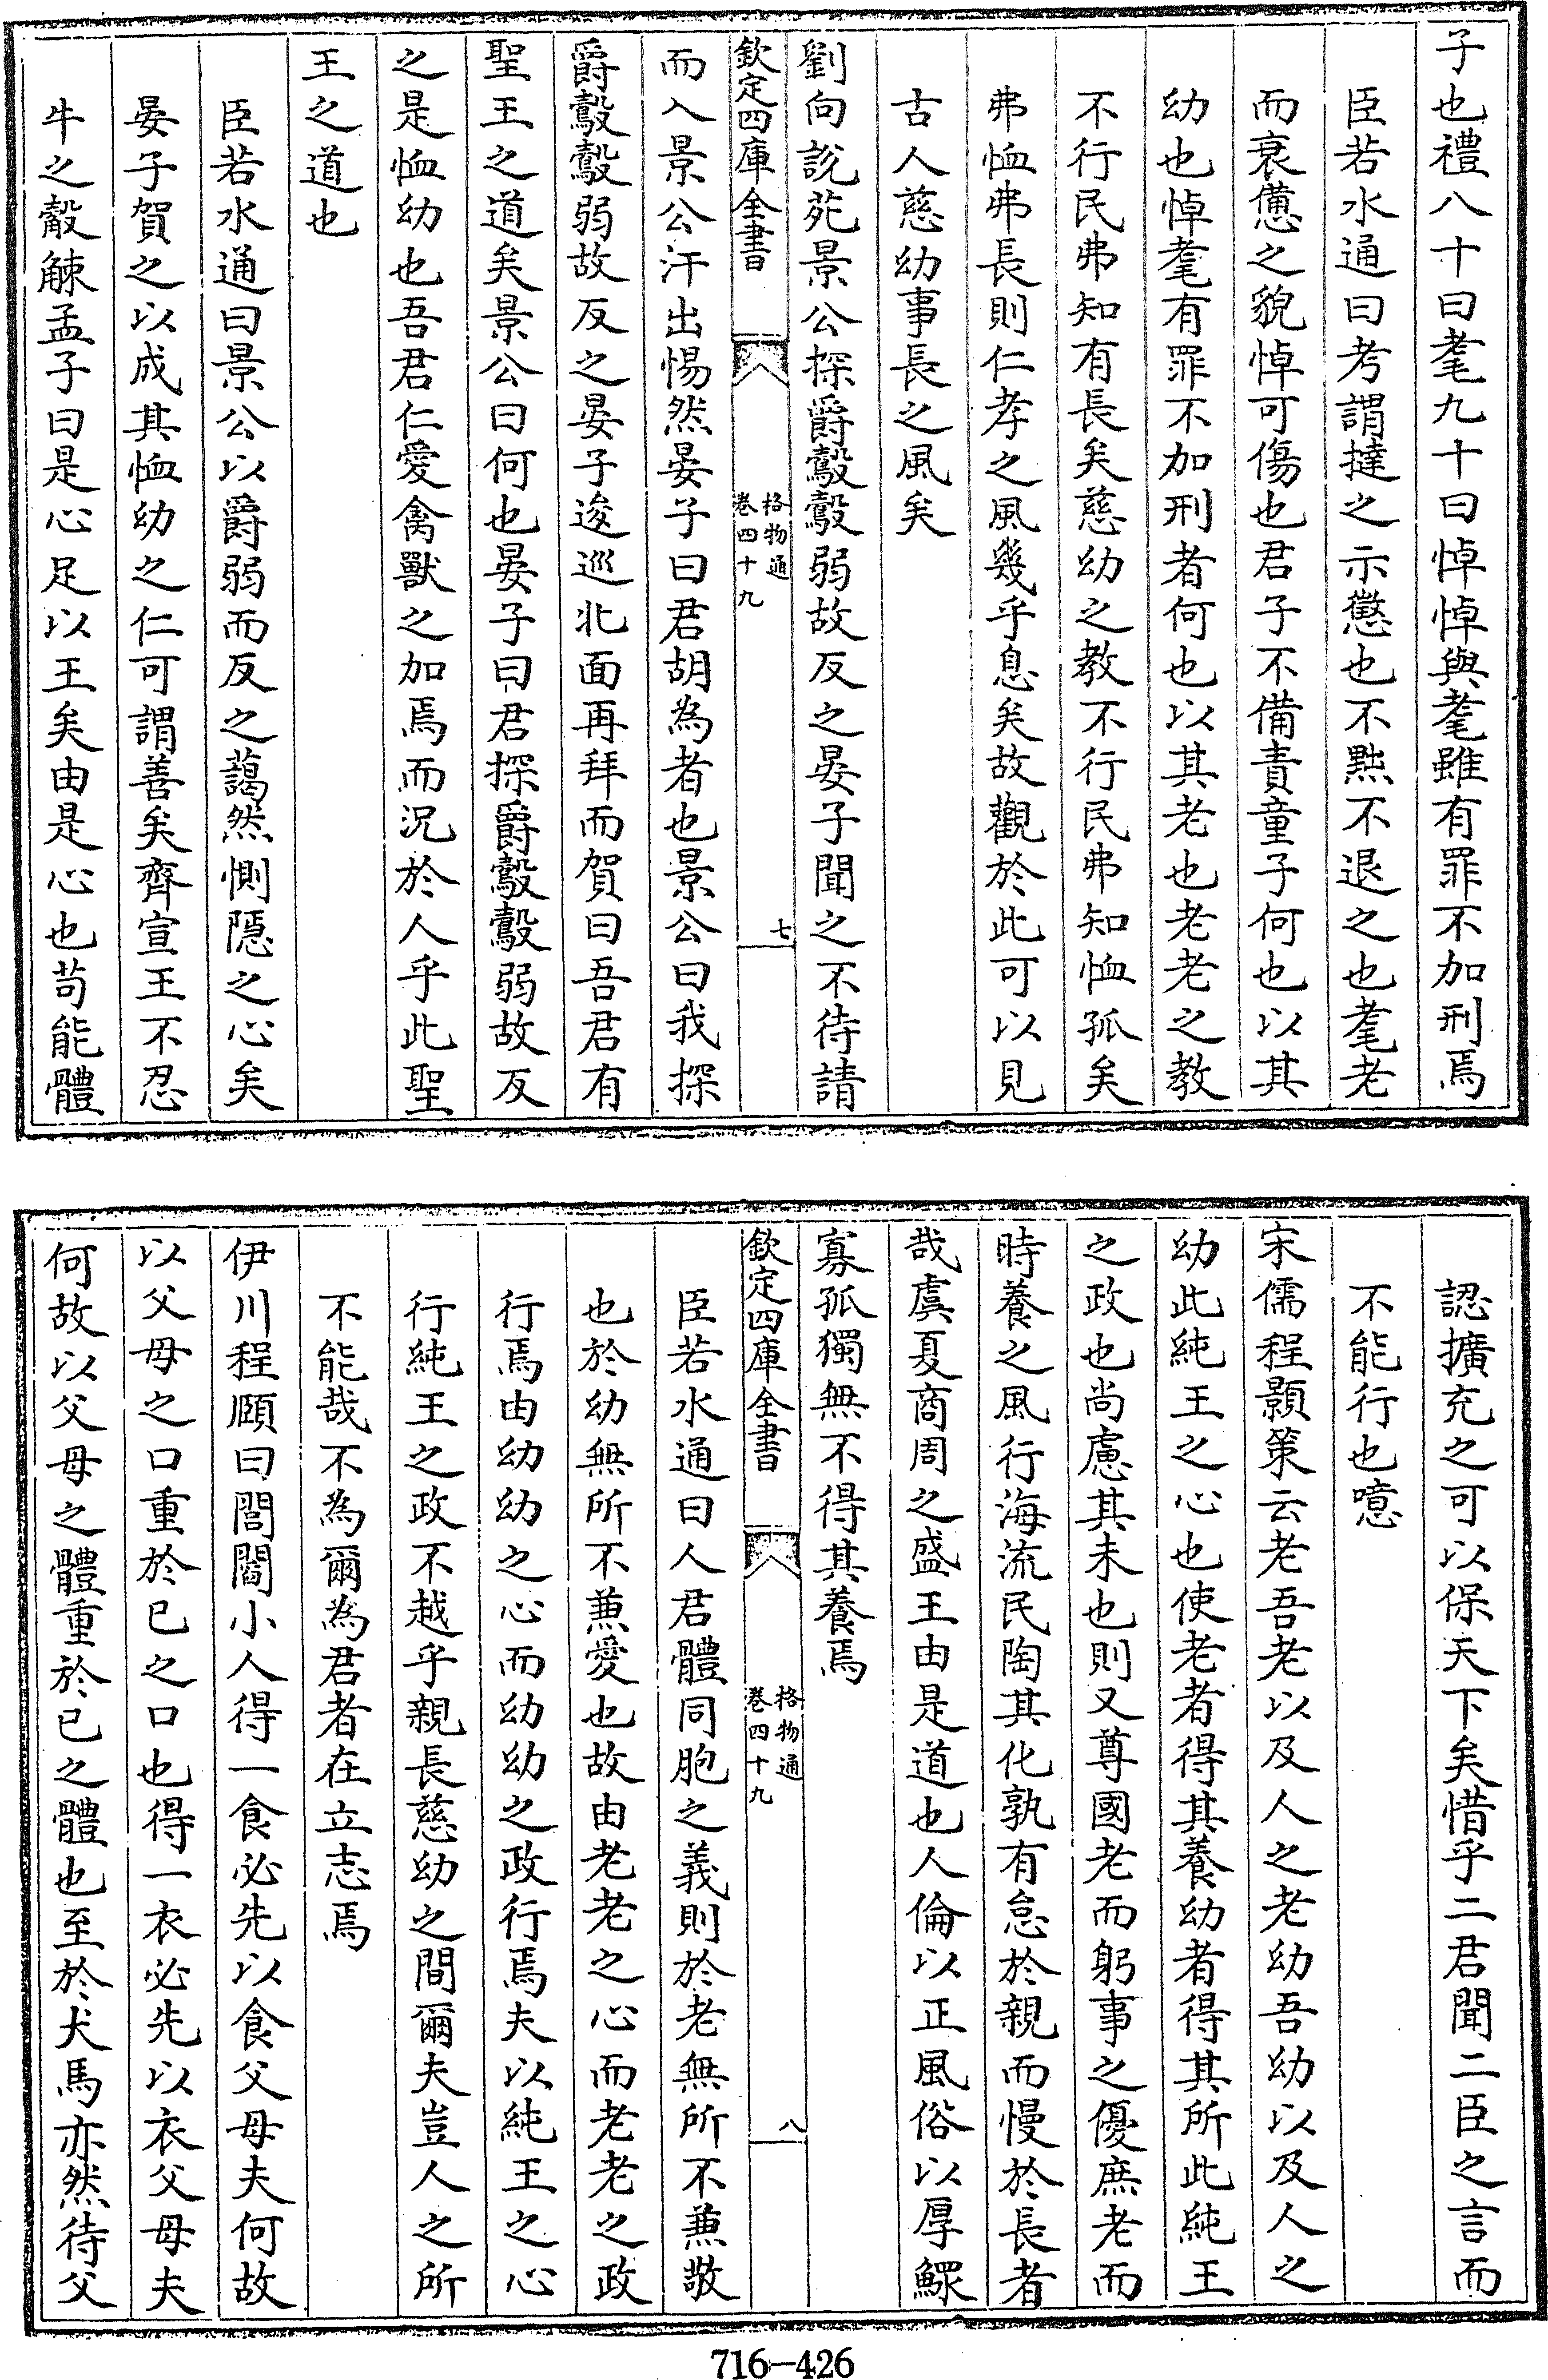 子也禮八十曰耄九十曰悼悼與耄雖有罪不加刑焉
臣若水通曰考謂撻之示懲也不㸃不退之也耄老
而衰憊之貌悼可傷也君子不備責童子何也以其
幼也悼耄有罪不加刑者何也以其老也老老之教
不行民弗知有長矣慈幼之教不行民弗知恤孤矣
弗恤弗長則仁孝之風幾乎息矣故觀於此可以見
古人慈幼事長之風矣
劉向說苑景公探爵鷇鷇弱故反之晏子聞之不待請
欽定四庫全書
格物通
卷四十九
七
而入景公汗出惕然晏子曰君胡為者也景公曰我探
爵鷇鷇弱故反之晏子逡巡北面再拜而賀曰吾君有
聖王之道矣景公曰何也晏子曰君探爵鷇鷇弱故反
之是恤幼也吾君仁愛禽獸之加焉而況於人乎此聖
王之道也
臣若水通曰景公以爵弱而反之藹然惻隱之心矣
晏子賀之以成其恤幼之仁可謂善矣齊宣王不忍
牛之觳觫孟子曰是心足以王矣由是心也苟能體
認擴充之可以保天下矣惜乎二君聞二臣之言而
不能行也噫
宋儒程顥策云老吾老以及人之老幼吾幼以及人之
幼此純王之心也使老者得其養幼者得其所此純王
之政也尚慮其未也則又尊國老而躬事之優庶老而
時養之風行海流民陶其化孰有怠於親而慢於長者
哉虞夏商周之盛王由是道也人倫以正風俗以厚鰥
寡孤獨無不得其養焉
欽定四庫全書
格物通
卷四十九
八
臣若水通曰人君體同胞之義則於老無所不兼敬
也於幼無所不兼愛也故由老老之心而老老之政
行焉由幼幼之心而幼幼之政行焉夫以純王之心
行純王之政不越乎親長慈幼之間爾夫豈人之所
不能哉不為爾為君者在立志焉
伊川程頤曰閭閻小人得一食必先以食父母夫何故
以父母之口重於已之口也得一衣必先以衣父母夫
何故以父母之體重於已之體也至於犬馬亦然待父
716-426